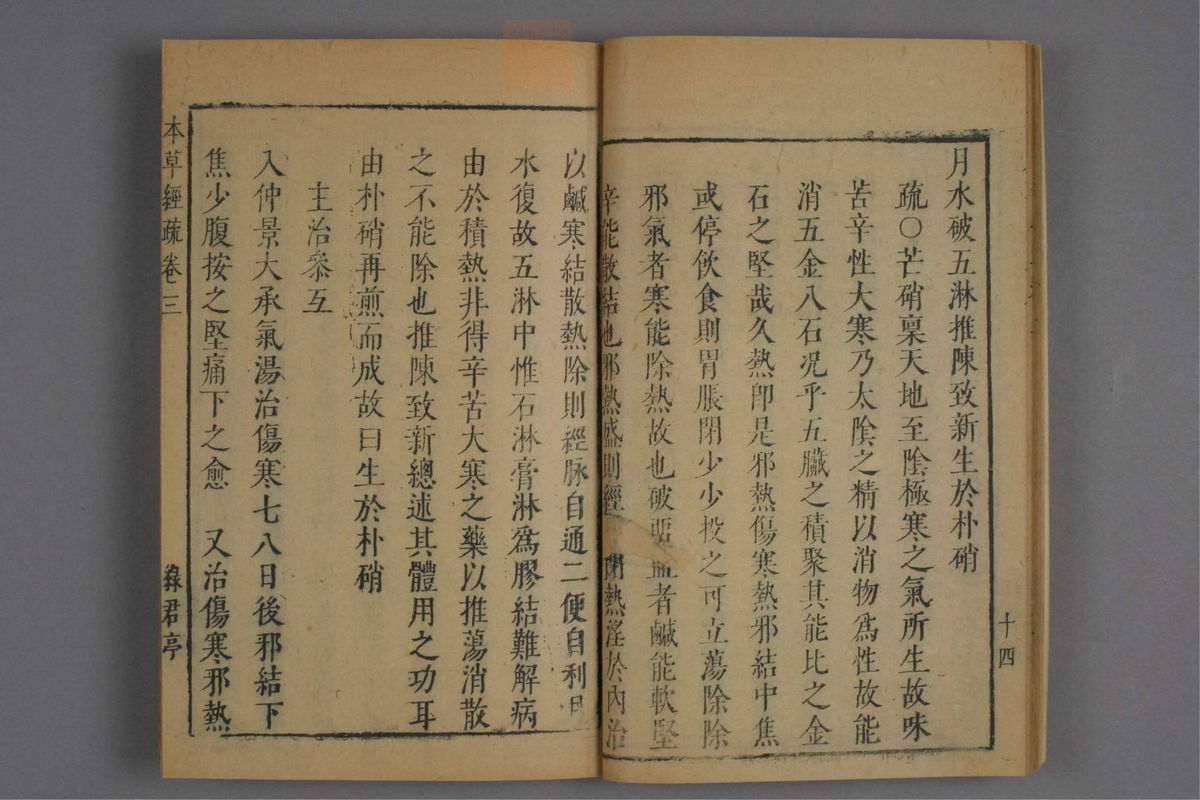 月水破五淋推陳致新生於朴硝
疏○芒硝稟天地至陰極寒之氣所生故味
苦辛性大寒乃太陰之精以消物爲性故能
消五金八石況乎五臟之積聚其能比之金
石之堅哉久熱即是邪熱傷寒熱邪結中焦
或停飲食則胃脹閉少少投之可立蕩除除
邪氣者寒能除熱故也破惡血者鹹能軟堅
辛能散結也邪熱盛則經閉熱淫於內治
十四
以鹹寒結散熱除則經脉自通二便自利月
水復故五淋中惟石淋膏淋爲膠結難解病
由於積熱非得辛苦大寒之藥以推蕩消散
之不能除也推陳致新總述其體用之功耳
由朴硝再煎而成故曰生於朴硝
主治參互
入仲景大承氣湯治傷寒七八日後邪結下
焦少腹按之堅痛下之愈 又治傷寒邪熱
本草經疏 卷三
綠君亭